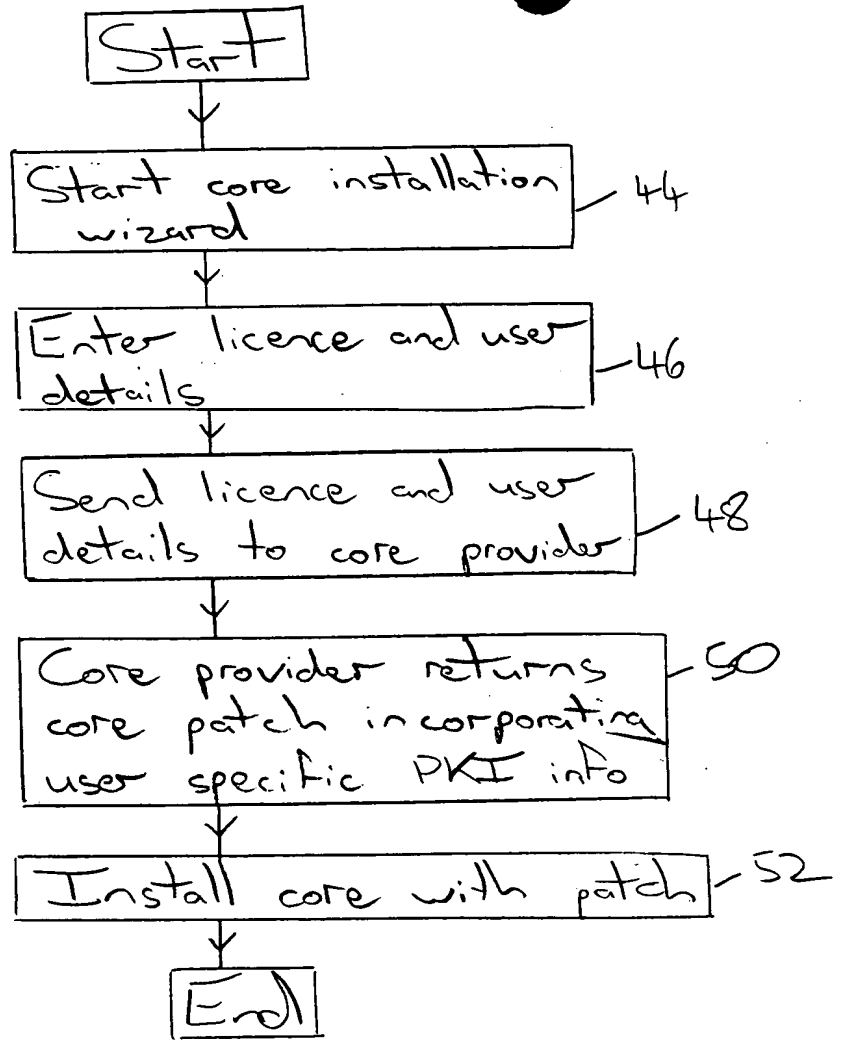 Start
Start core installation
wizard
44
Enter licence and user
details
46
Send licence and user
details to core provider
48
Core provider returns
core patch incorporating
user specific PKI info
50
Install core with patch
52
End